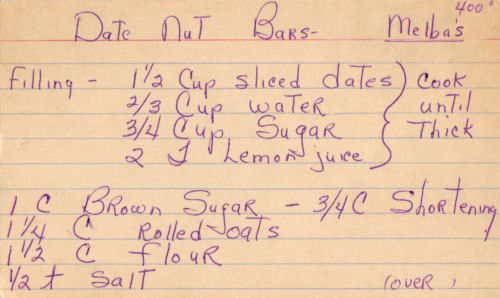 400°
Date Nut Bars- Melba's
Filling - 1 1/2 Cup sliced dates) Cook
2/3 Cup water until
3/4 Cup Sugar Thick
2 T Lemon juice
1 C Brown Sugar - 3/4 C Shortening
1 1/4 C Rolled oats
1 1/2 C flour
1/2 t Salt (over)